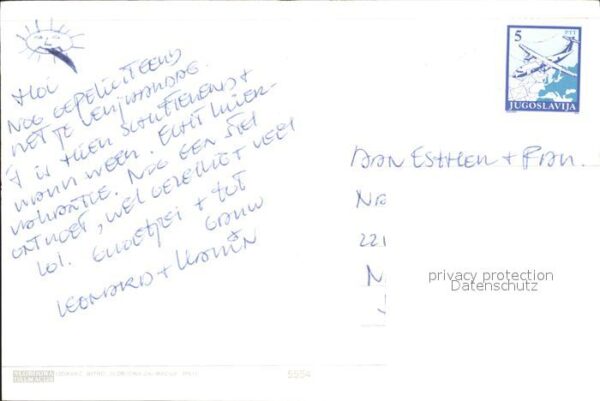 Hoi
NOG GEFELICITEERD
MET JE VERJAARDAG.
T IS HIER SCHITTEREND +
WARM WEER. ECHT WEER
VAKANTIE. NOG EEN STEL
ONTMOET, WEL GEZELLIG VEEL
LOL. GROETJES + TOT
GAUW
LEONARD + KARIN
5
PTT
JUGOSLAVIJA
AAN ESTHER + FRAN.
NA
221
N
privacy protection
Datenschutz
SLOBODNA
DALMACIJA
5554